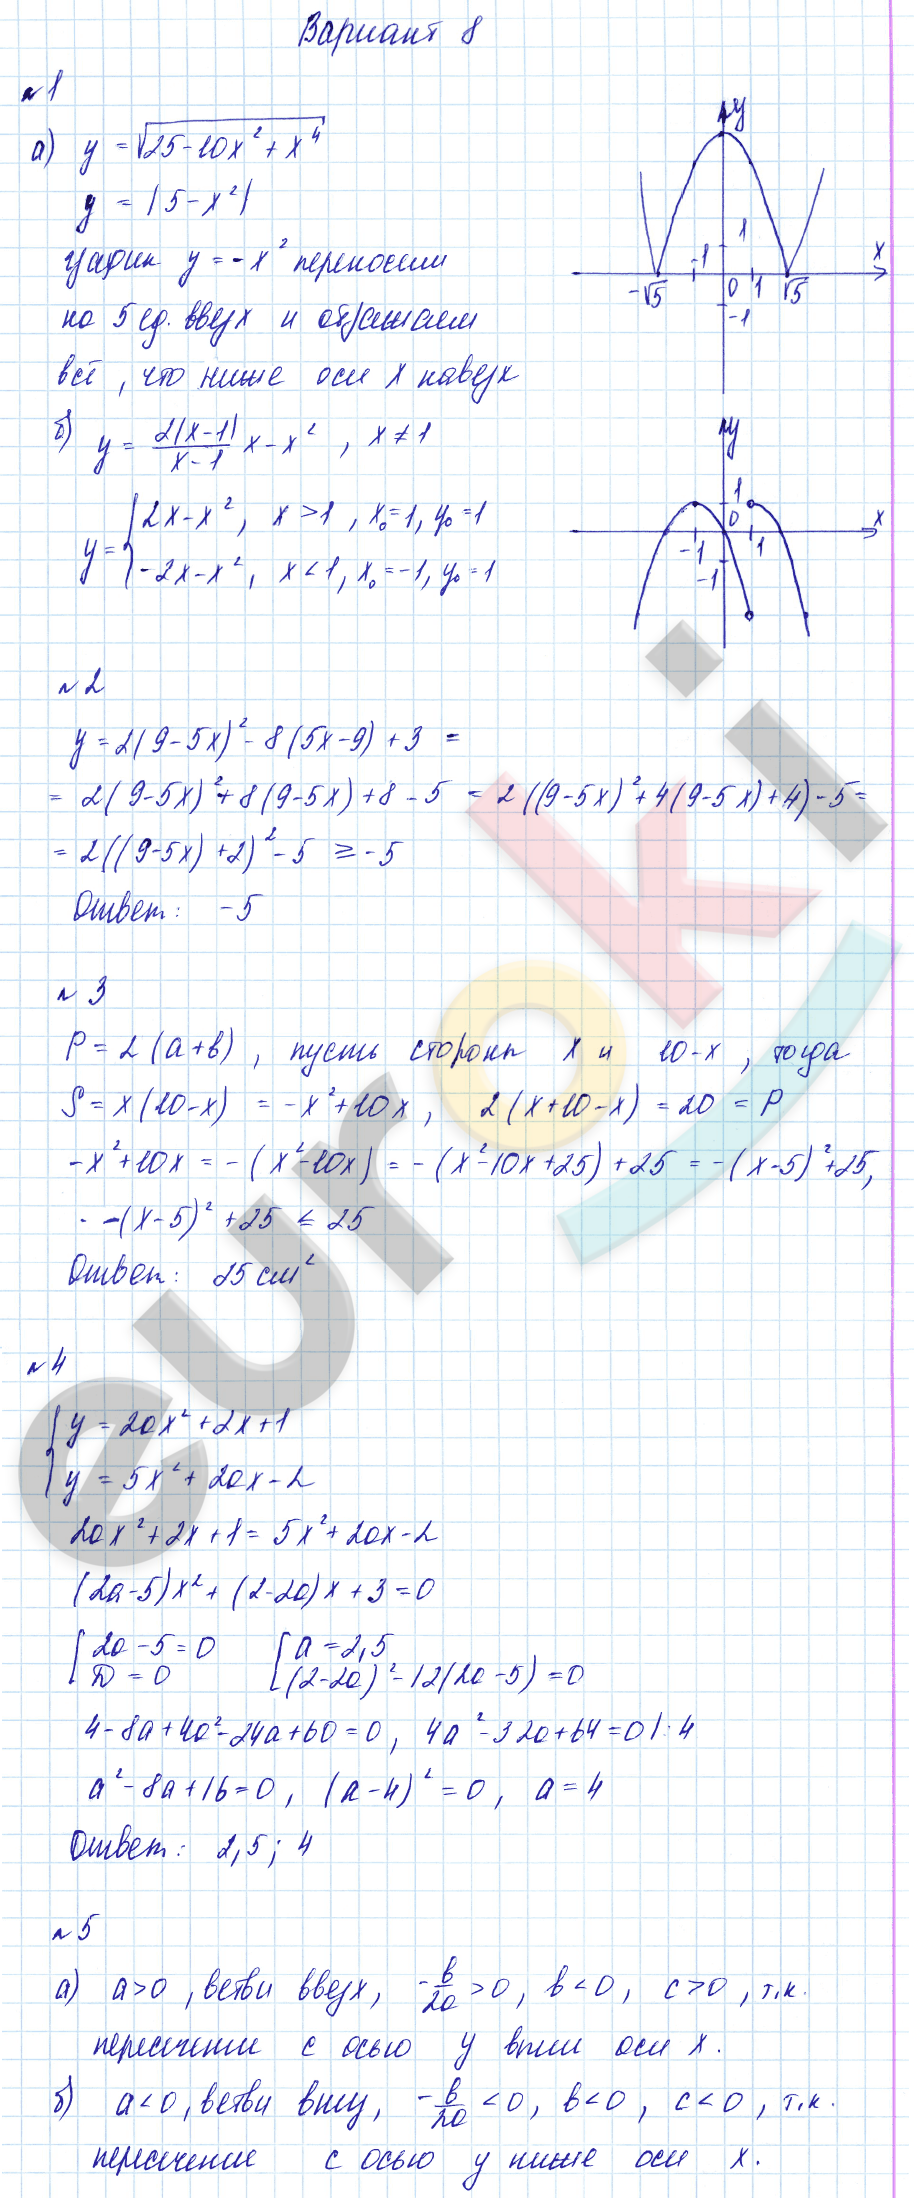 Вариант 8
№1
а) y = √(25-10x²+x⁴)
y = |5-x²|
график y = -x² переносим
на 5 ед. вверх и отражаем
всё, что ниже оси x наверх
y
x
-√5
-1
0
1
√5
1
-1
б) y = 2|x-1|/(x-1) x - x², x ≠ 1
y = { 2x-x², x > 1, x₀=1, y₀=1
-2x-x², x < 1, x₀=-1, y₀=1
y
x
1
0
-1
1
-1
№2
y = 2(9-5x)² - 8(5x-9) + 3 =
= 2(9-5x)² + 8(9-5x) + 8 - 5 = 2((9-5x)² + 4(9-5x) + 4) - 5 =
= 2((9-5x)+2)² - 5 ≥ -5
Ответ: -5
№3
P = 2(a+b), пусть стороны x и 10-x, тогда
S = x(10-x) = -x²+10x, 2(x+10-x) = 20 = P
-x²+10x = -(x²-10x) = -(x²-10x+25)+25 = -(x-5)²+25,
-(x-5)²+25 ≤ 25
Ответ: 25 см²
№4
{ y = 2ax²+2x+1
y = 5x²+2ax-2
2ax²+2x+1 = 5x²+2ax-2
(2a-5)x²+(2-2a)x+3=0
[ 2a-5=0 [ a=2,5
D=0 (2-2a)²-12(2a-5)=0
4-8a+4a²-24a+60=0, 4a²-32a+64=0 |:4
a²-8a+16=0, (a-4)²=0, a=4
Ответ: 2,5; 4
№5
а) a>0, ветви вверх, -b/2a >0, b<0, c>0, т.к.
пересечение с осью y выше оси x.
б) a<0, ветви вниз, -b/2a <0, b<0, c<0, т.к.
пересечение с осью y ниже оси x.
euroki